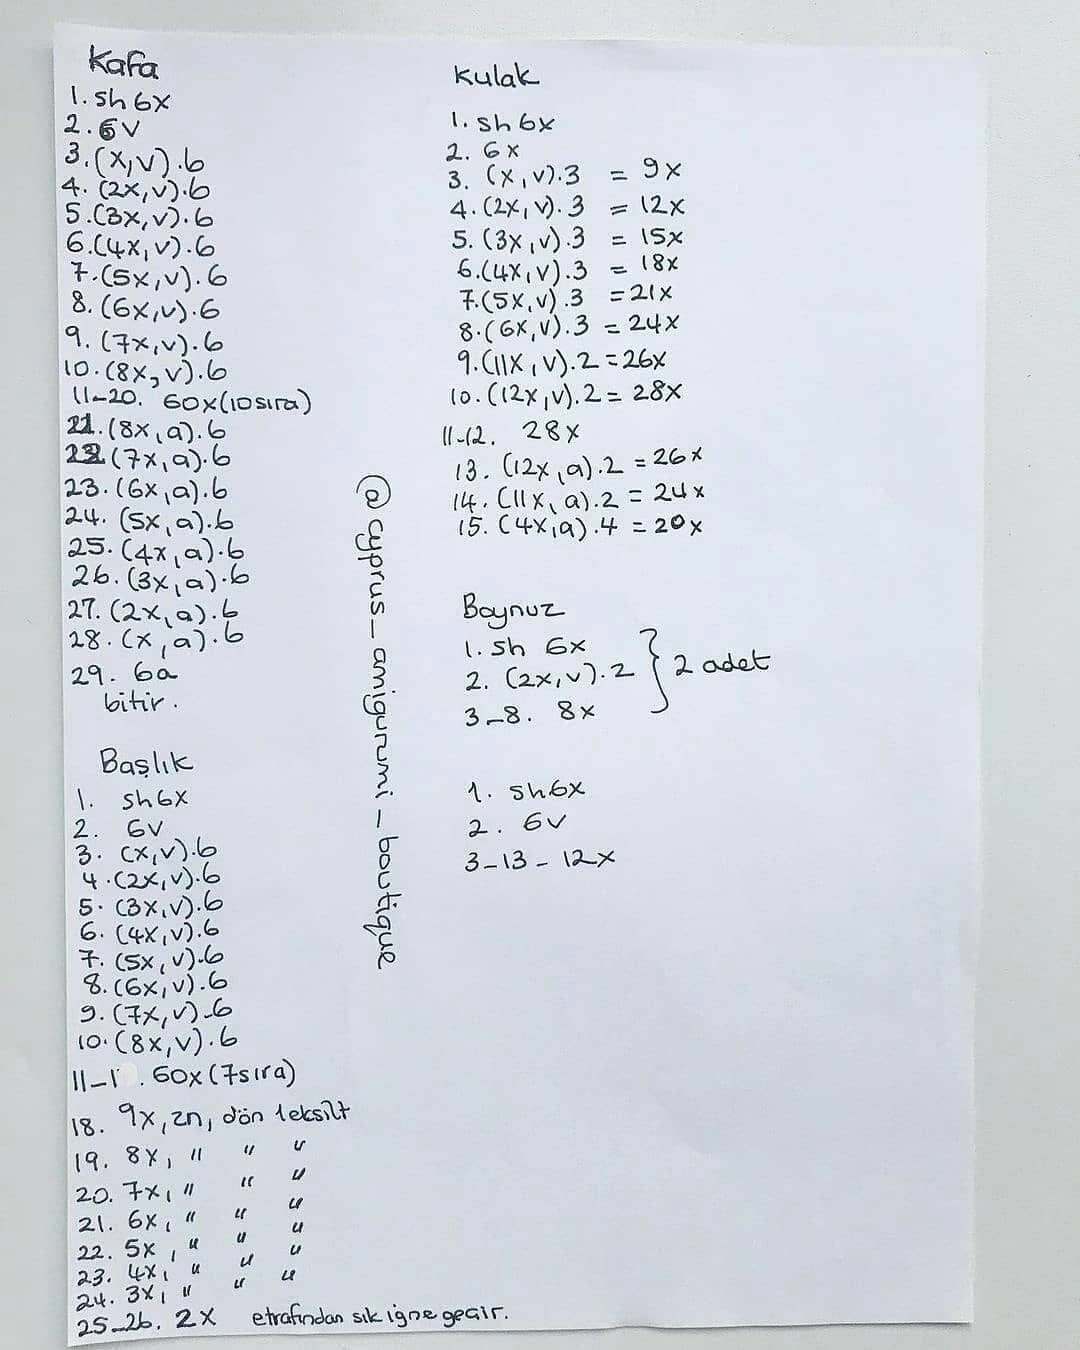 Kafa
1. sh 6x
2. 6V
3. (x,v).6
4. (2x,v).6
5. (3x,v).6
6. (4x,v).6
7. (5x,v).6
8. (6x,v).6
9. (7x,v).6
10. (8x,v).6
11-20. 60x (10sıra)
21. (8x,a).6
22. (7x,a).6
23. (6x,a).6
24. (5x,a).6
25. (4x,a).6
26. (3x,a).6
27. (2x,a).6
28. (x,a).6
29. 6a
bitir.
Başlık
1. sh6x
2. 6V
3. (x,v).6
4. (2x,v).6
5. (3x,v).6
6. (4x,v).6
7. (5x,v).6
8. (6x,v).6
9. (7x,v).6
10. (8x,v).6
11-1 . 60x (7sıra)
18. 9x, zn, dön 1eksilt
19. 8x, " " "
20. 7x, " " "
21. 6x, " " "
22. 5x, " " "
23. 4x, " " "
24. 3x, " " "
25-26. 2x etrafından sık iğne geçir.
@cyprus_amigurumi_boutique
Kulak
1. sh 6x
2. 6x
3. (x,v).3 = 9x
4. (2x,v).3 = 12x
5. (3x,v).3 = 15x
6. (4x,v).3 = 18x
7. (5x,v).3 = 21x
8. (6x,v).3 = 24x
9. (11x,v).2 = 26x
10. (12x,v).2 = 28x
11-12. 28x
13. (12x,a).2 = 26x
14. (11x,a).2 = 24x
15. (4x,a).4 = 20x
Boynuz
1. sh 6x
2. (2x,v).2 } 2 adet
3-8. 8x
1. sh6x
2. 6v
3-13- 12x